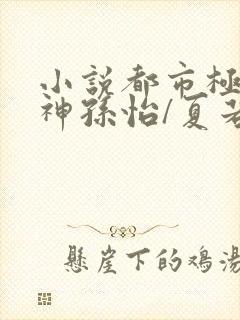 小説都市極
神孫怡/夏若
懸崖下的鸡湯